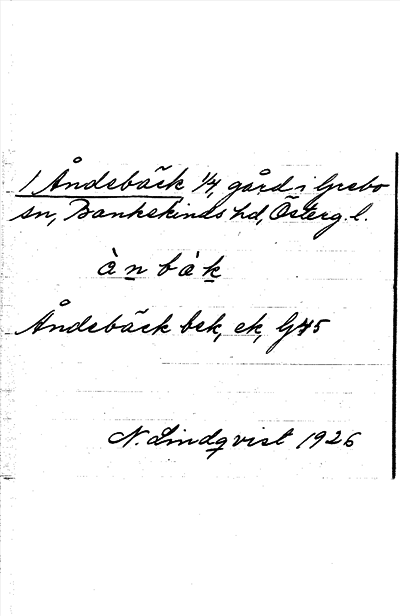 1 Åndebäck 1/4, gård i Grebo
sn, Bankekinds hd, Österg. l.
à n b a' k
Åndebäck bek, ek, G45
N. Lindqvist 1926